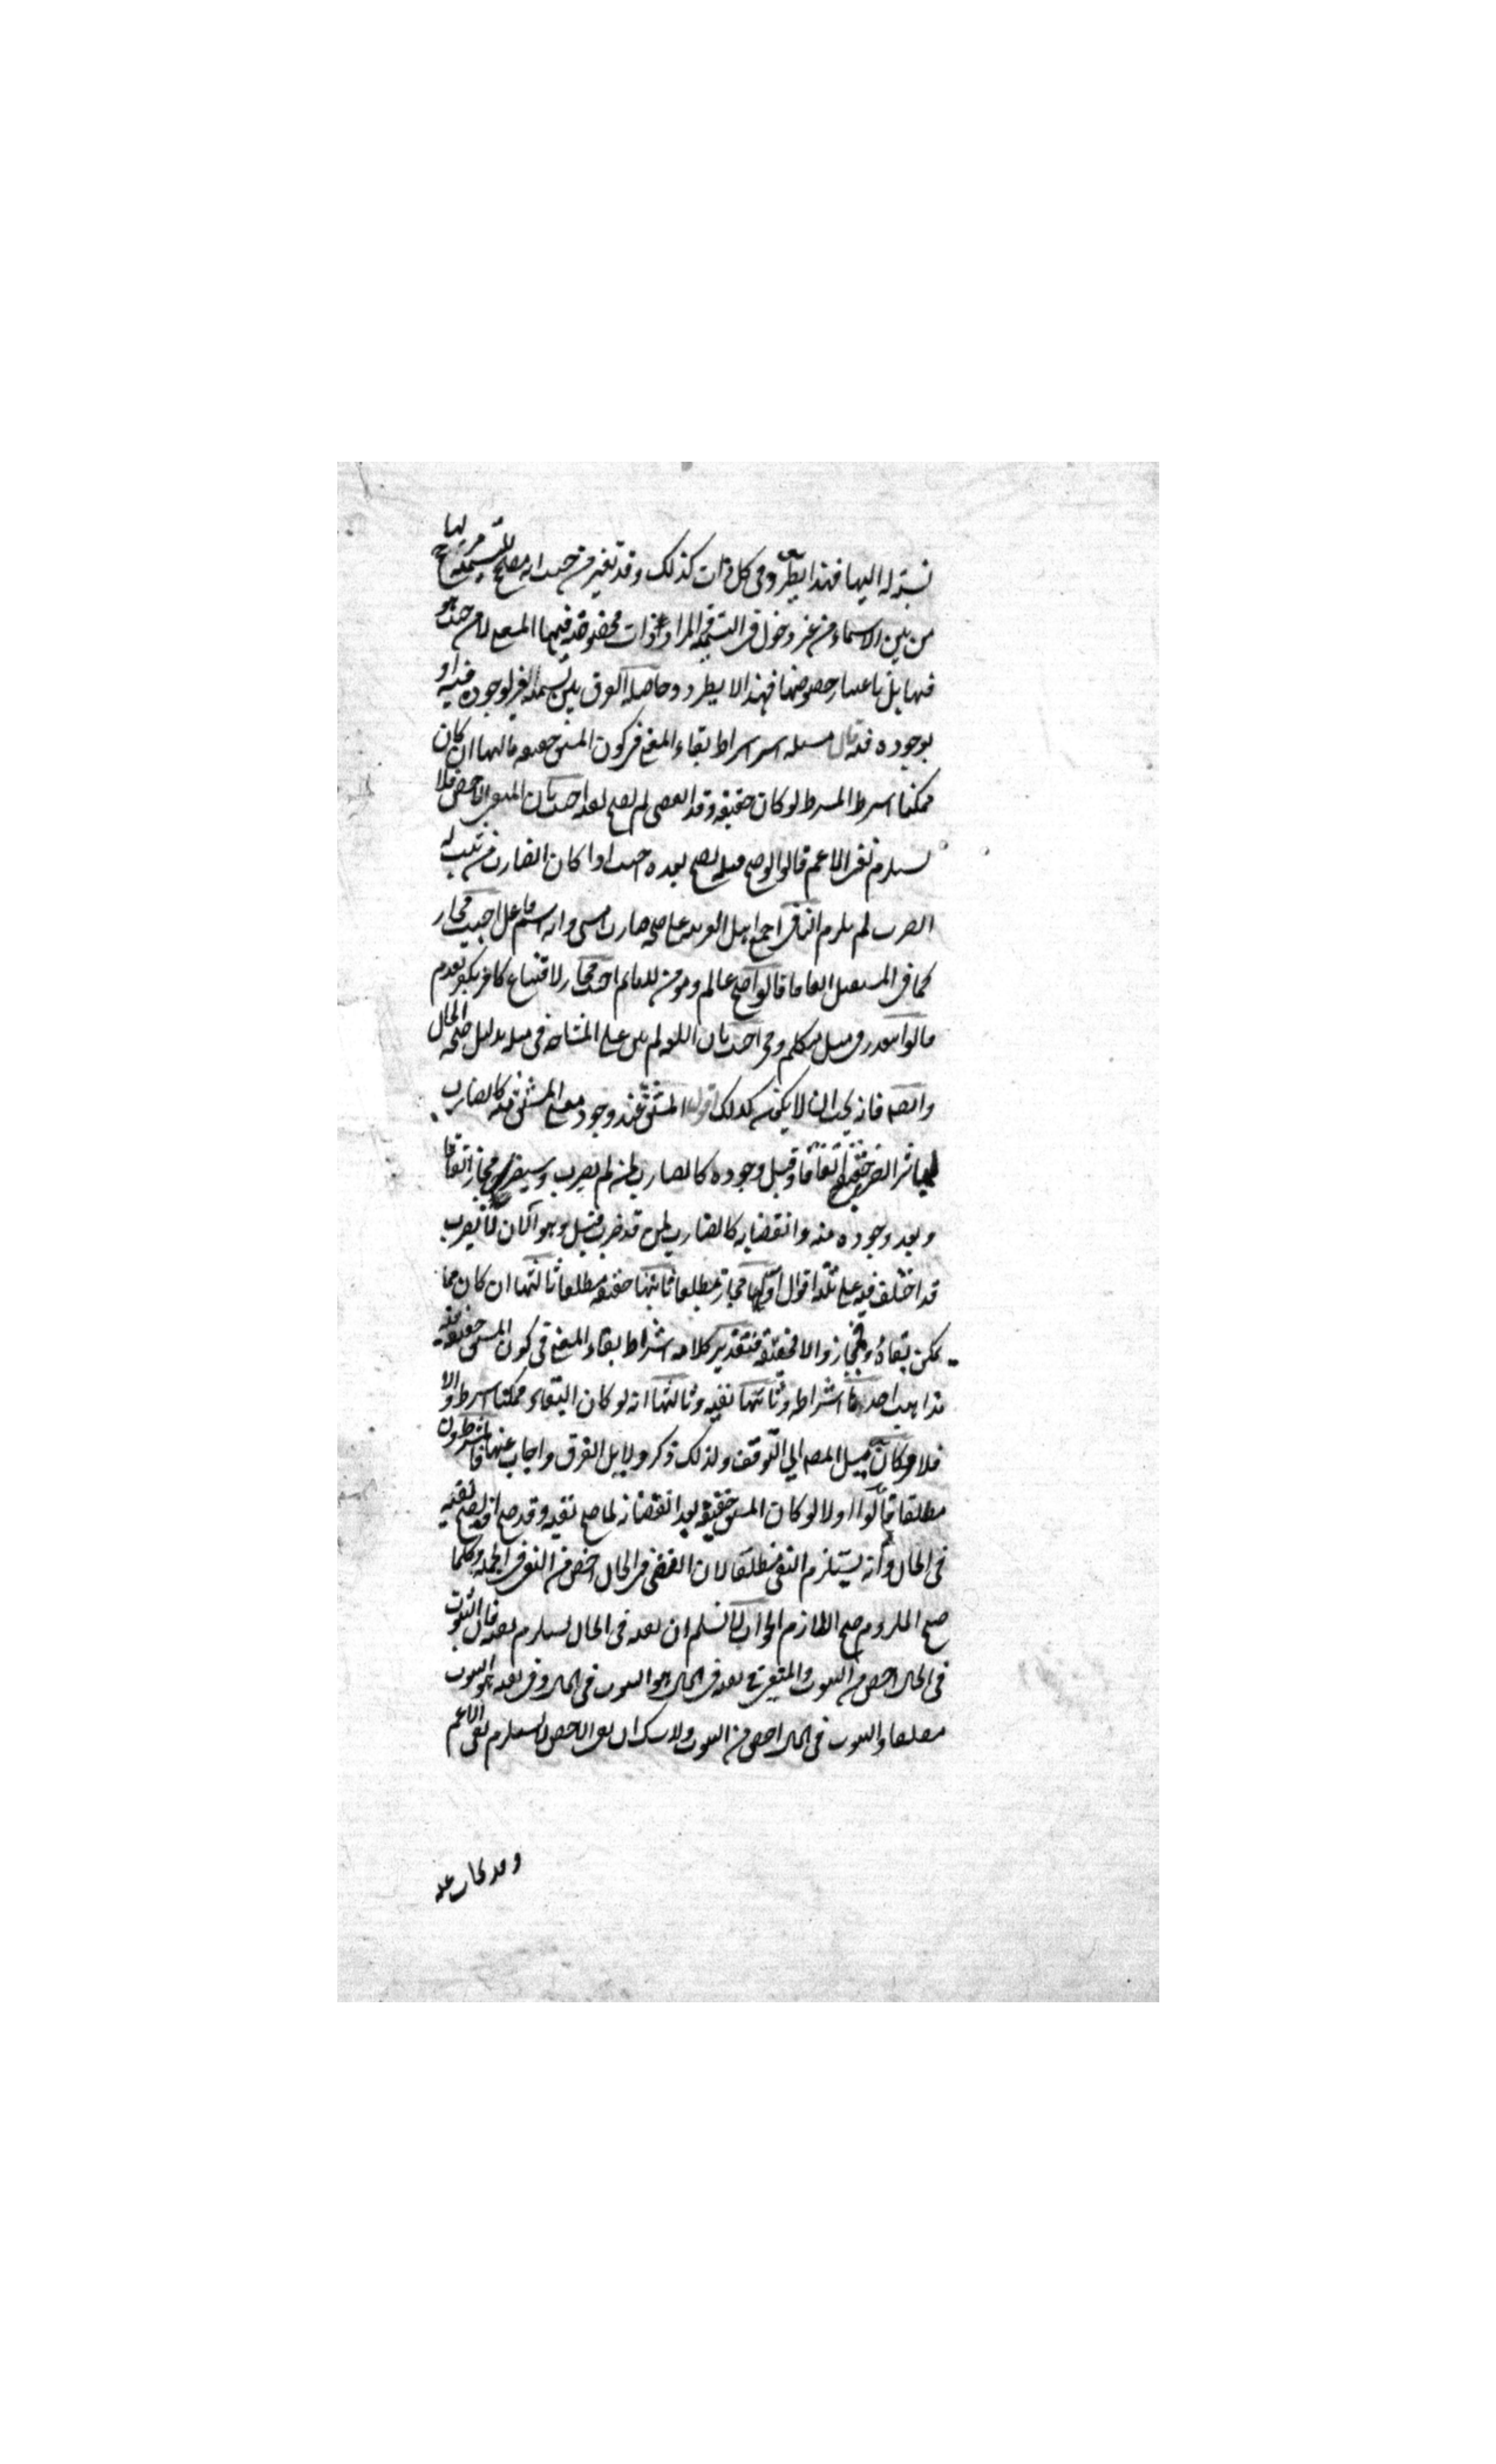 نسبة له اليها فهذا يطرد في كل ذات كذلك وقد تعتبر من حيث انه مصحح للتسمية مرجح لها
من بين الاسماء من غير دخول في التسمية والمراد ذات مخصوصة فيها المعنى لا من حيث هو
فيها بل باعتبار خصوصها فهذا لا يطرد وحاصله الفرق بين تسمية الغير لوجوده فيه او
بوجوده فيه قال مسئلة اشتراط بقاء المعنى في كون المشتق حقيقة ثالثها ان كان
ممكنا اشترط المشترط لو كان حقيقة وقد انقضى لم يصح نفيه اجيب بان المنفي الاخص فلا
يستلزم نفي الاعم قالوا لو صح قبله لصح بعده اجيب اذا كان الضارب من ثبت له
الضرب لم يلزم النافي اجمع اهل العربية على صحة ضارب امس وانه اسم فاعل اجيب مجاز
كما في المستقبل اتفاقا قالوا صح عالم ومؤمن للنائم اجيب مجاز لامتناع كافر بكفر تقدم
قالوا يتعذر في مثل متكلم ومخبر اجيب بان اللغة لم تبن على المشاحة في مثله بدليل صحة الحال
وايضا فانه يجب ان لا يكون كذلك اقول المشتق عند وجود معنى المشتق منه كالضارب
لمباشر الضرب حقيقة اتفاقا وقبل وجوده كالضارب لمن لم يضرب وسيضرب مجاز اتفاقا
وبعد وجوده منه وانقضائه كالضارب لمن قد ضرب قبل وهو الان لا يضرب
قد اختلف فيه على ثلثة اقوال اولها مجاز مطلقا ثانيها حقيقة مطلقا ثالثها ان كان مما
يمكن بقاؤه فمجاز والا فحقيقة فتقدير كلامه اشتراط بقاء المعنى في كون المشتق حقيقة فيه
مذاهب احدها اشتراطه وثانيها نفيه وثالثها انه لو كان البقاء ممكنا اشترط والا
فلا وكان ميل المصه الي التوقف ولذلك ذكر دلايل الفرق واجاب عنها المشترطون
مطلقا قالوا اولا لو كان المشتق حقيقة بعد انقضائه لما صح نفيه وقد صح اذ يصح نفيه
في الحال وانه يستلزم النفي مطلقا لان النفي في الحال اخص من النفي في الجملة وكلما
صح الملزوم صح اللازم الجواب لا نسلم ان نفيه في الحال يستلزم نفيه فان الثبوت
في الحال اخص من الثبوت والمنفي في نفيه في الحال هو الثبوت في الحال وفي نفيه هو الثبوت
مطلقا والثبوت في الحال اخص من الثبوت ولا شك ان نفي الاخص لا يستلزم نفي الاعم
وقد يجاب عنه